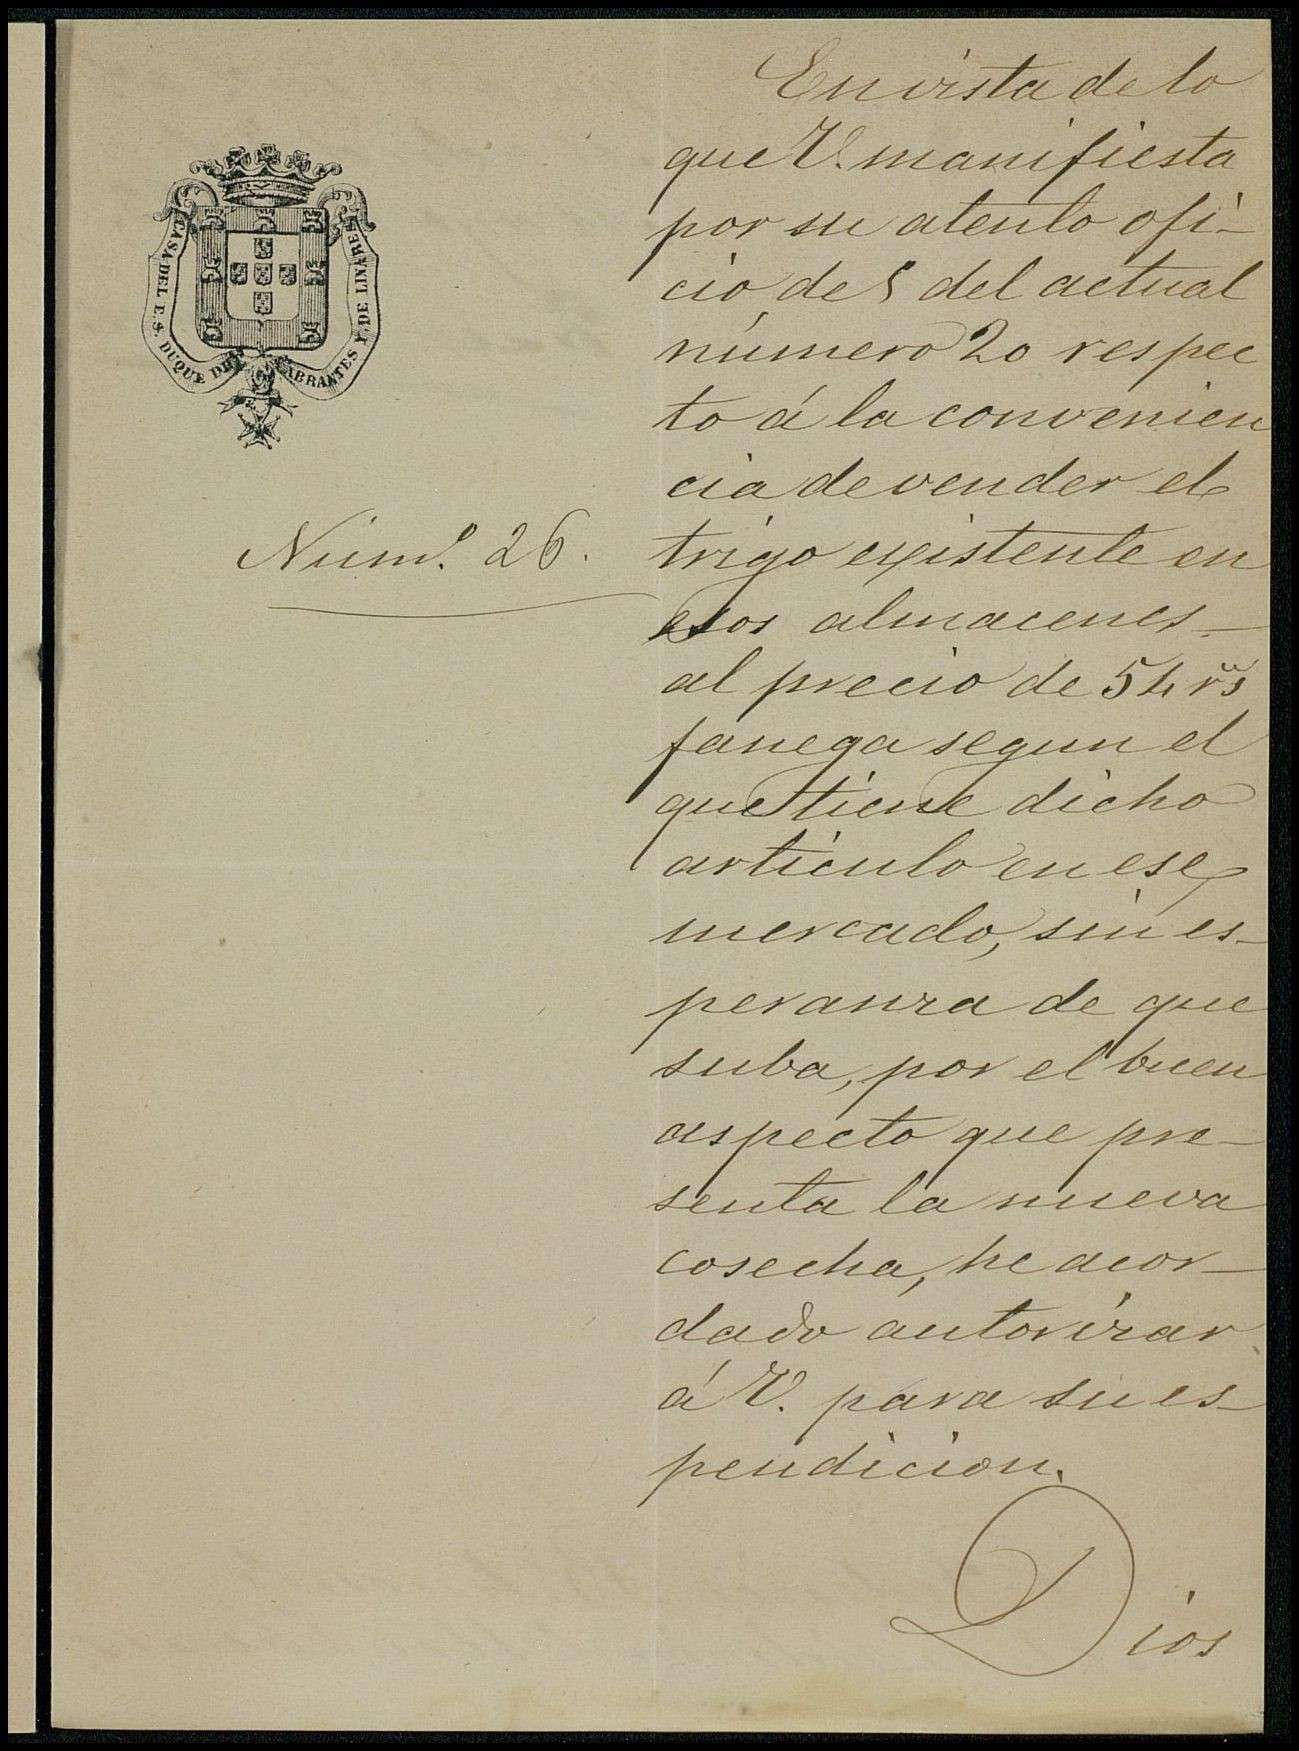 CASA DEL E.S. DUQUE DE ABRANTES Y DE LINARES
Núm.º 26.
En vista de lo
que V. manifiesta
por su atento ofi-
cio de 5 del actual
número 20 respec
to á la convenien
cia de vender el
trigo existente en
esos almacenes
al precio de 54 rs
fanega segun el
que tiene dicho
artículo en ese
mercado, sin es-
peranza de que
suba, por el buen
aspecto que pre-
senta la nueva
cosecha, he acor-
dado autorizar
á V. para su es-
pendicion.
Dios